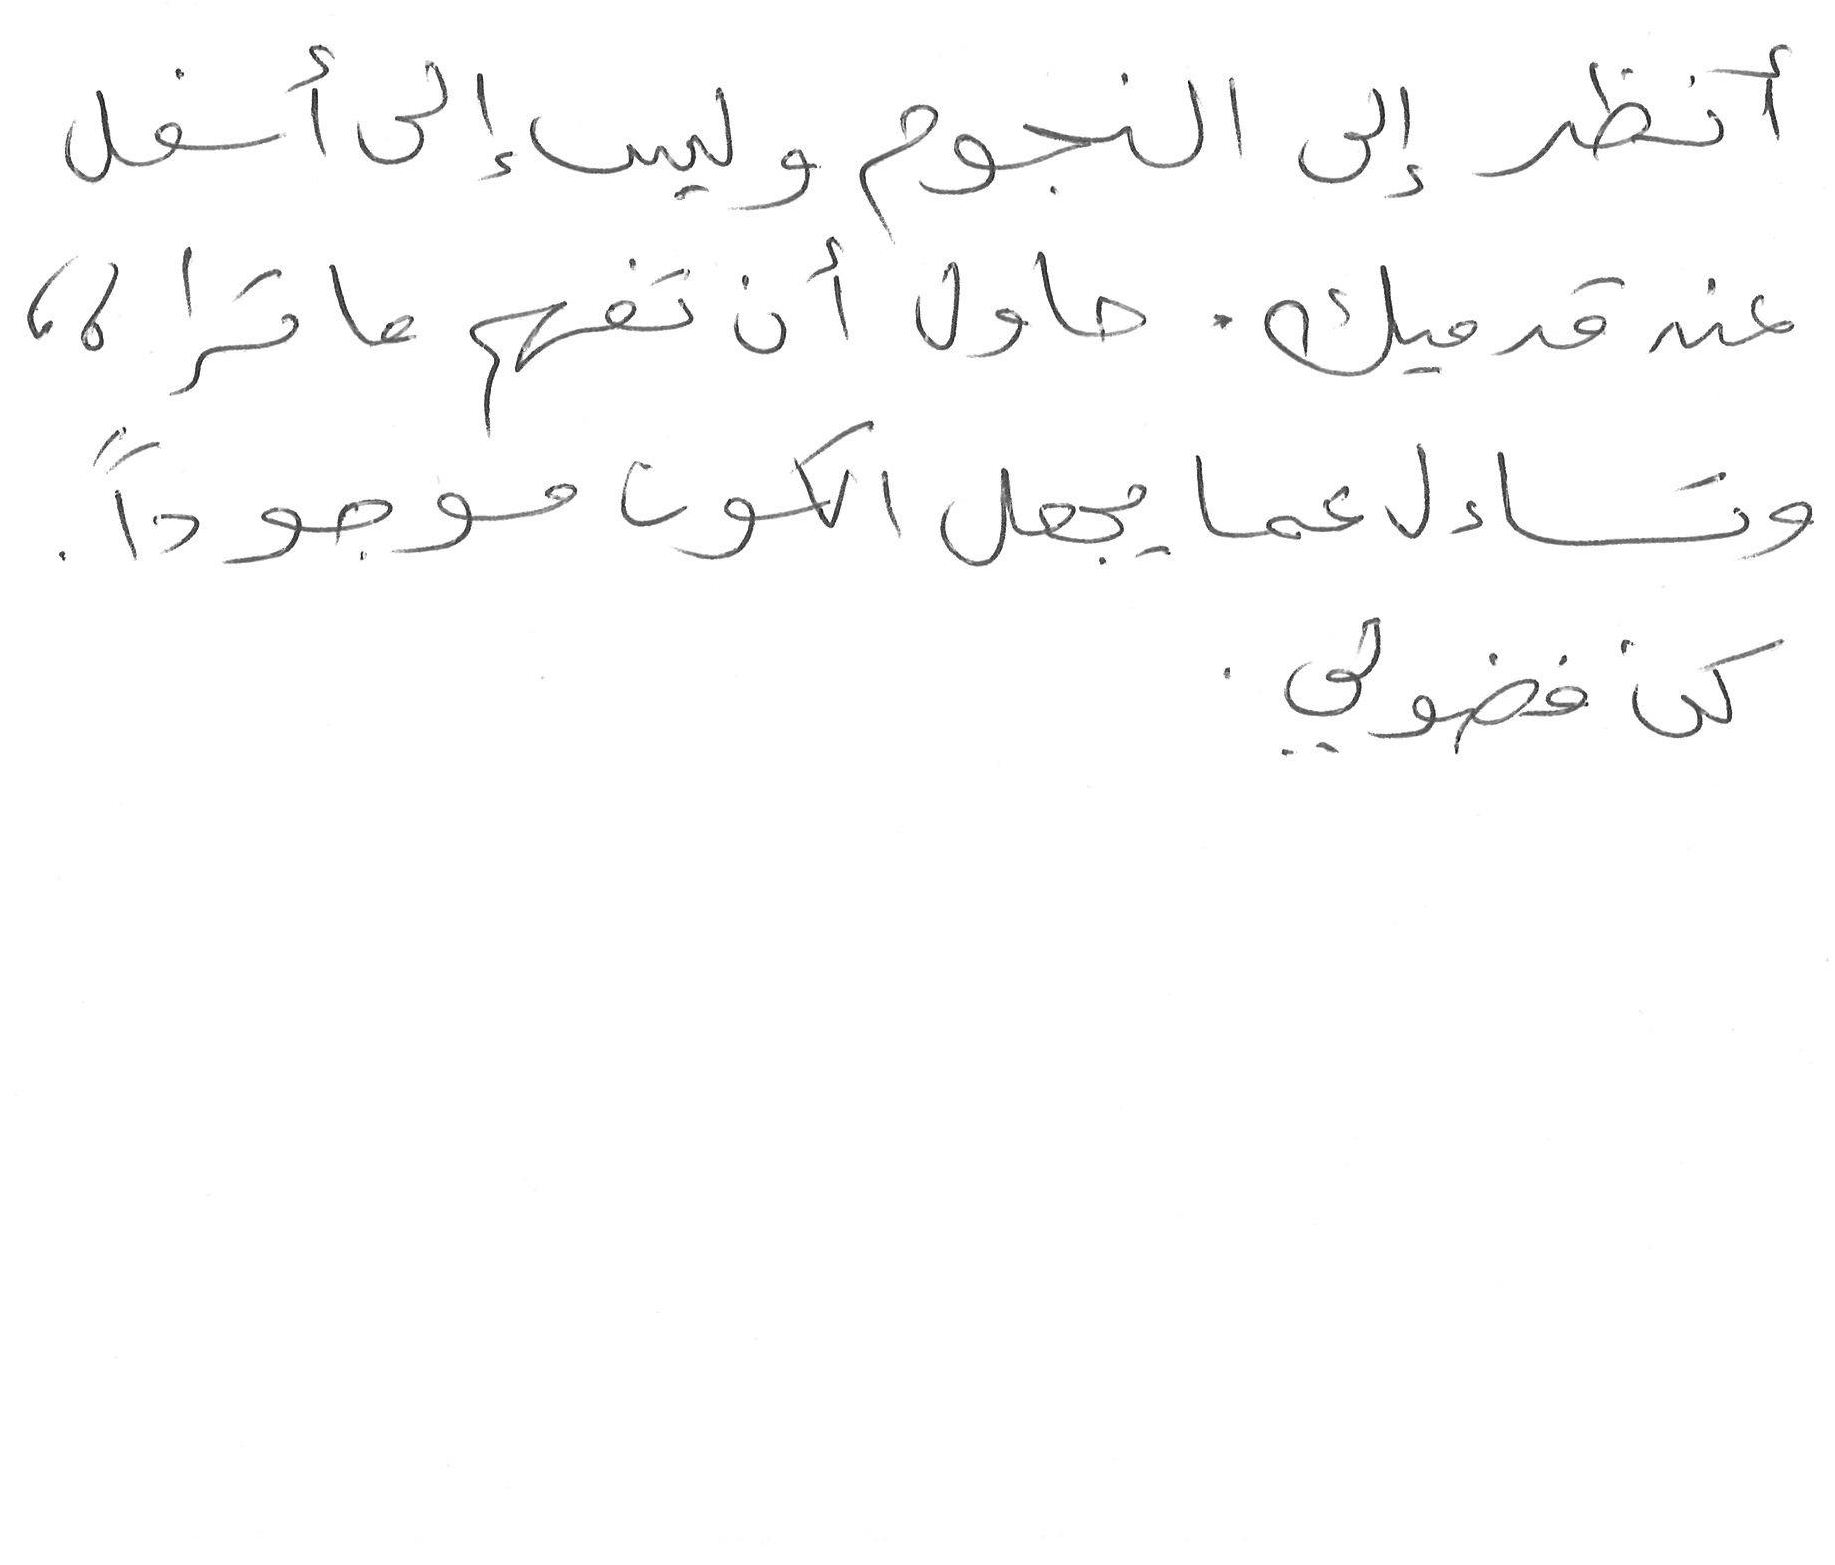 أنظر إلى النجوم وليس إلى أسفل
عند قدميك. حاول أن تفهم ما ترا ه،
وتساءل عما يجعل الكون موجوداً.
كن فضولي.